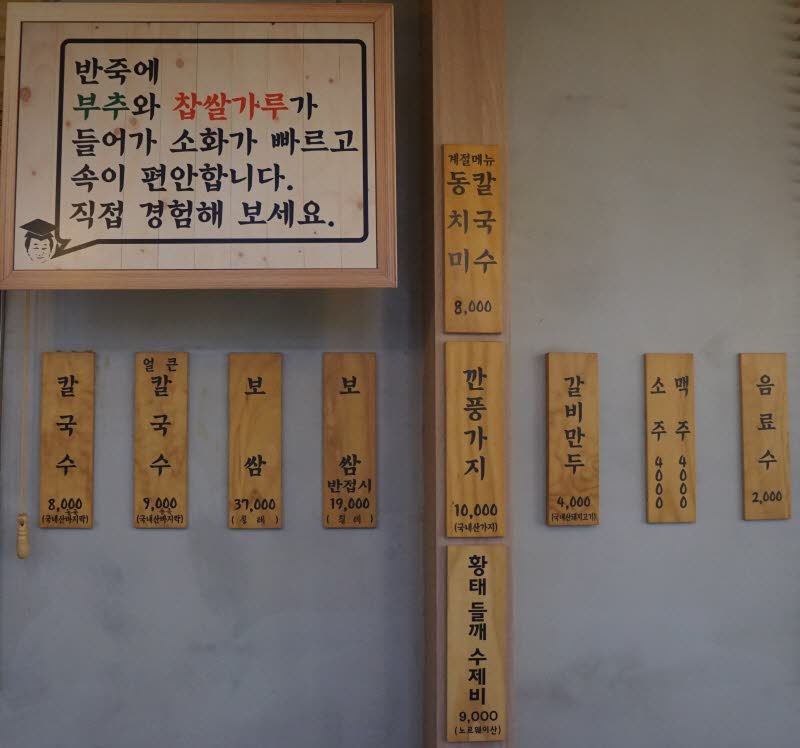 반죽에
부추와 찹쌀가루가
들어가 소화가 빠르고
속이 편안합니다.
직접 경험해 보세요.
칼국수
8,000
(국내산바지락)
얼큰
칼국수
9,000
(국내산바지락)
보쌈
37,000
(칠레)
보쌈
반접시
19,000
(칠레)
계절메뉴
동치미
칼국수
8,000
깐풍가지
10,000
(국내산가지)
황태 들깨 수제비
9,000
(노르웨이산)
갈비만두
4,000
(국내산돼지고기)
소주 4000
맥주 4000
음료수
2,000